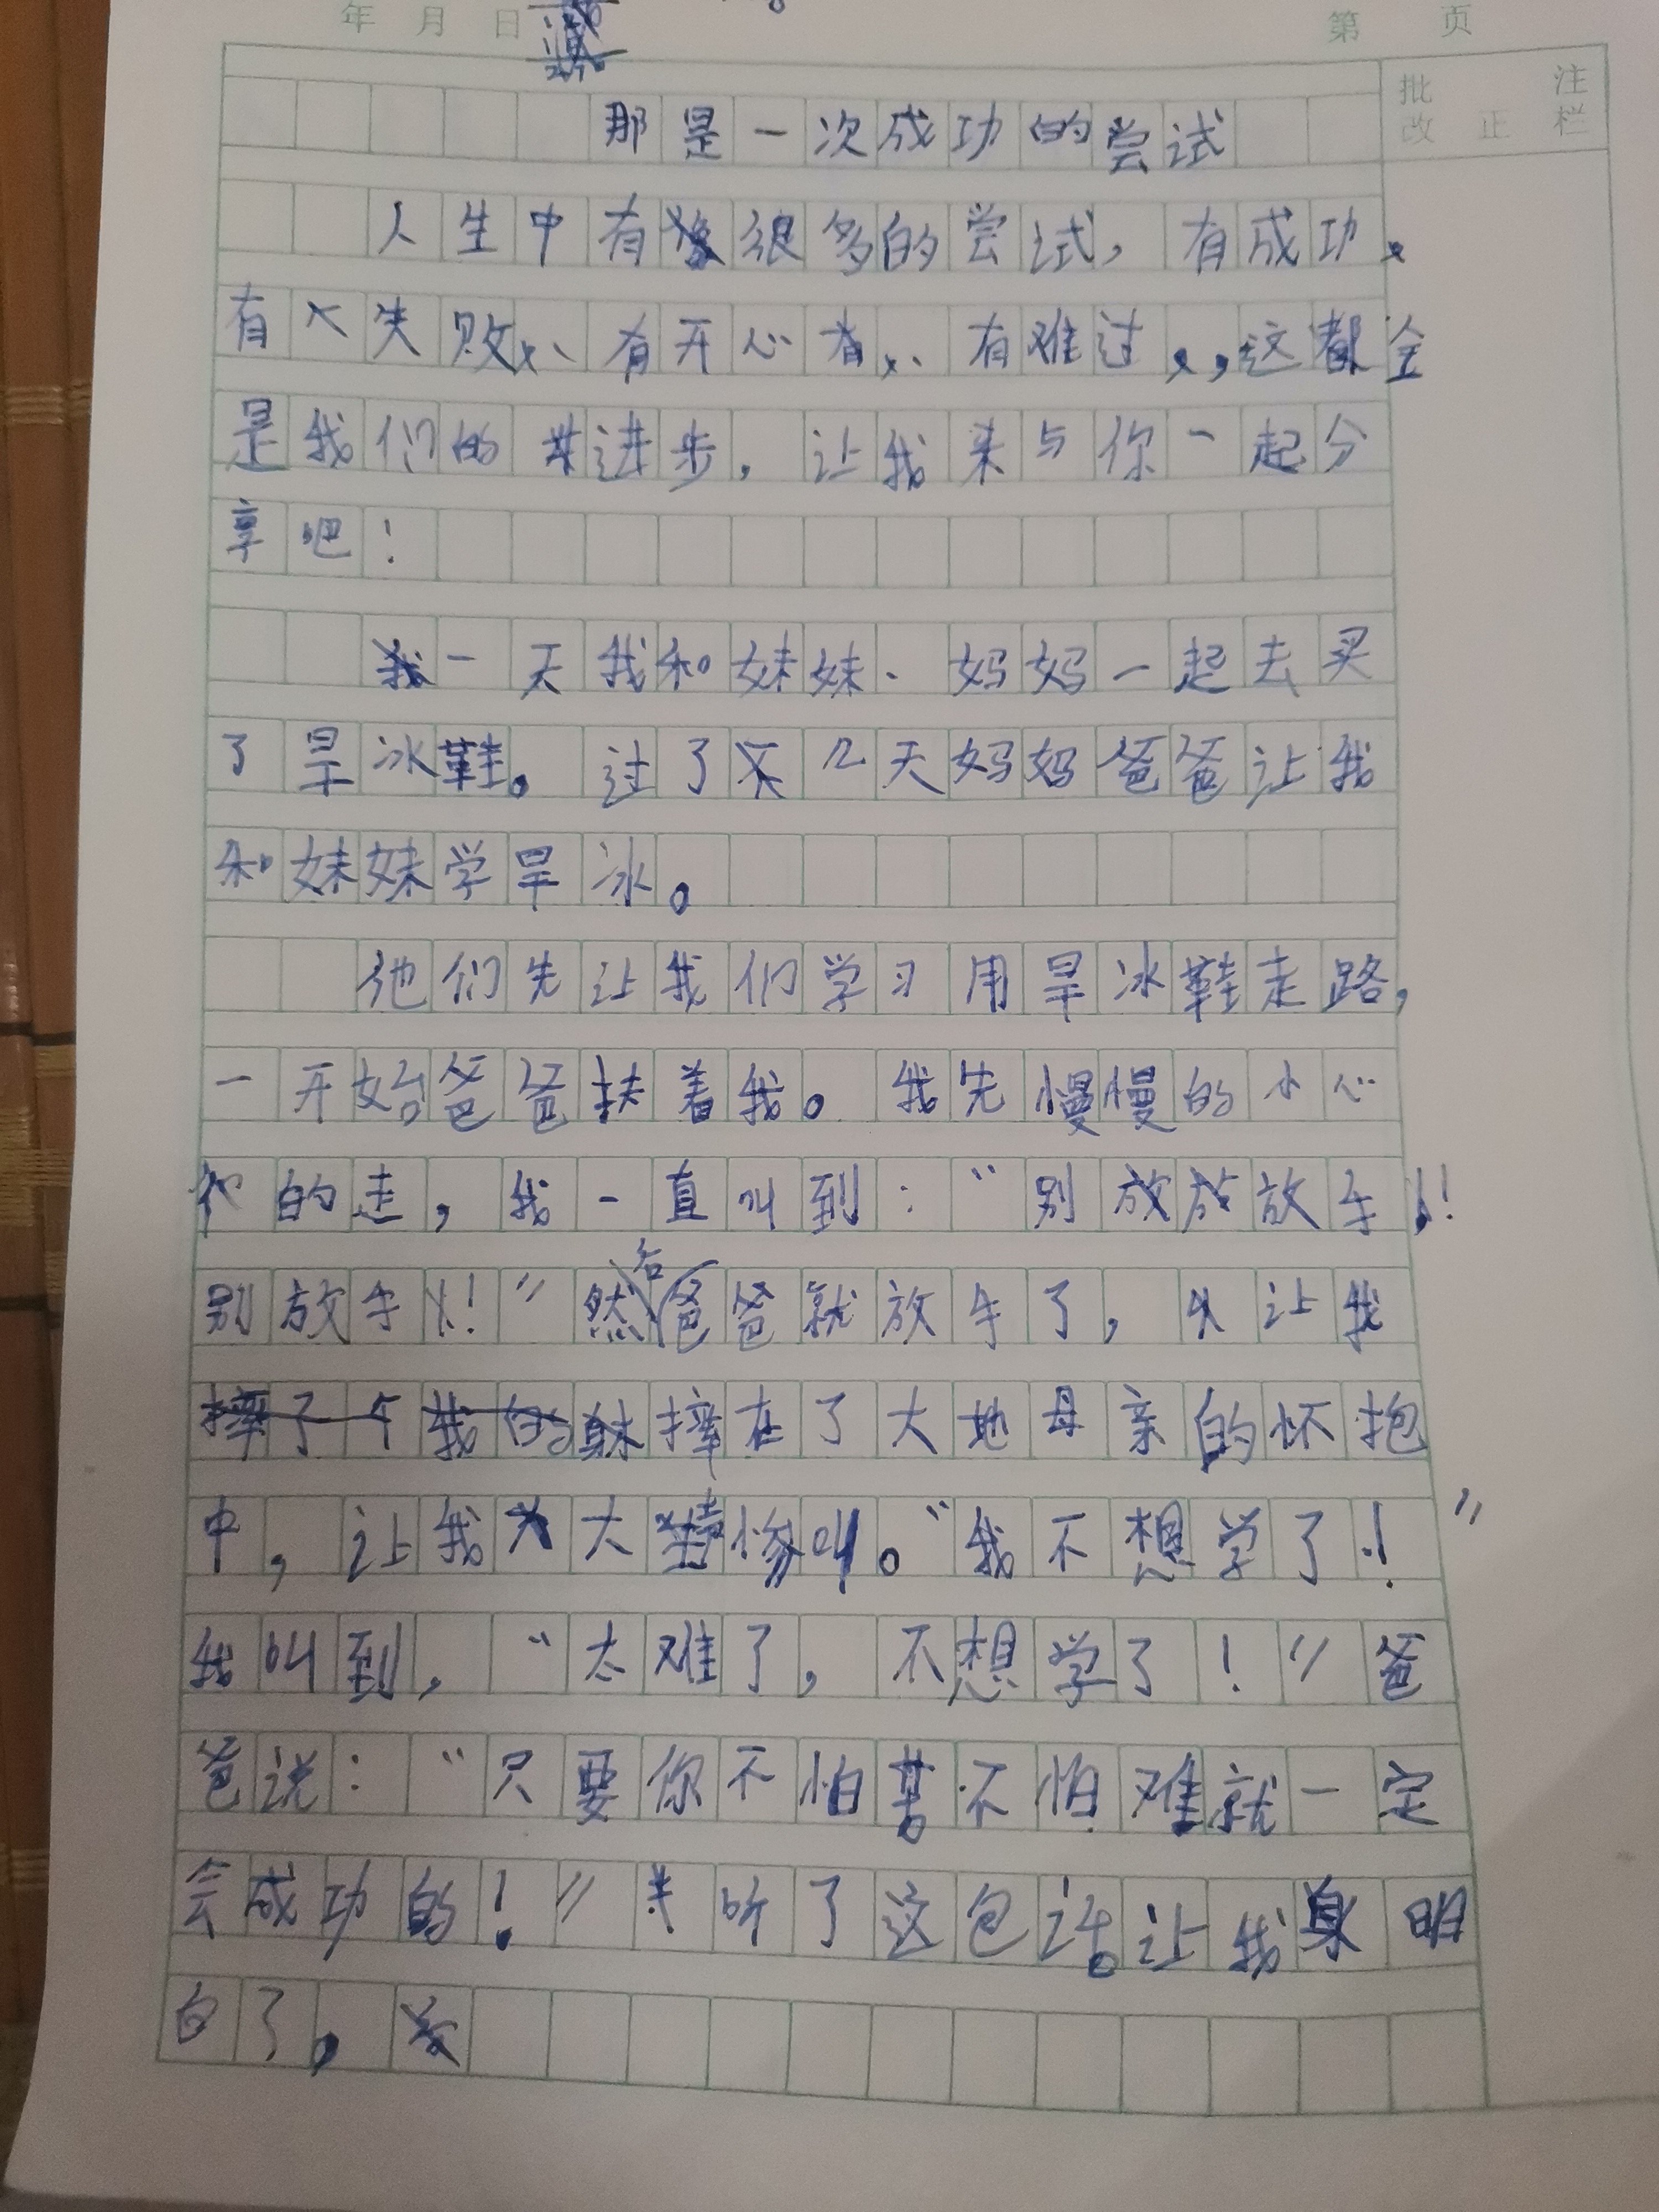 年 月 日 第 页
批 注
改 正 栏
那是一次成功的尝试
人生中有很多的尝试，有成功、
有失败、有开心、有难过，这都全
是我们的进步，让我来与你一起分
享吧！
一天我和妹妹、妈妈一起去买
了旱冰鞋。过了几天妈妈爸爸让我
和妹妹学旱冰。
他们先让我们学习用旱冰鞋走路，
一开始爸爸扶着我。我先慢慢的小心
的走，我一直叫到：“别放放放手！
别放手！”然后爸爸就放手了，让我
摔在了大地母亲的怀抱
中，让我大惨叫。“我不想学了！”
我叫到，“太难了，不想学了！”爸
爸说：“只要你不怕苦不怕难就一定
会成功的！”听了这包话。让我明
白了，